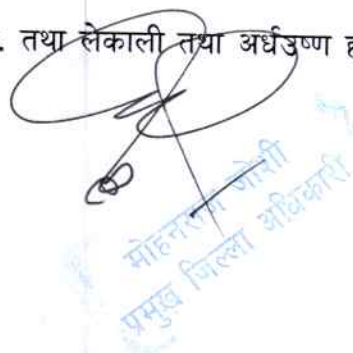 . तथा लेकाली तथा अर्धउष्ण ह
मोहनराज जोशी
प्रमुख जिल्ला अधिकारी